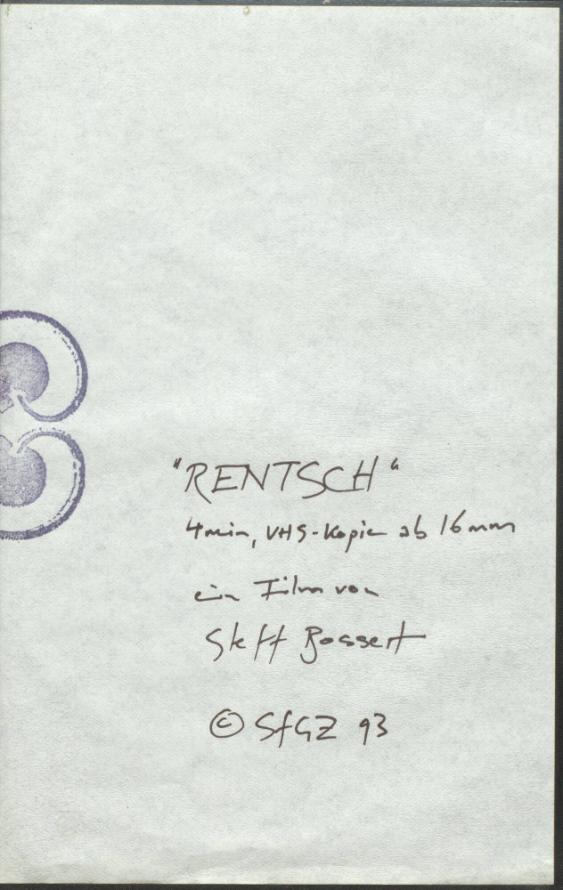 "RENTSCH"
4min, VHS-Kopie ab 16mm
ein Film von
Steff Bossert
© SfGZ 93